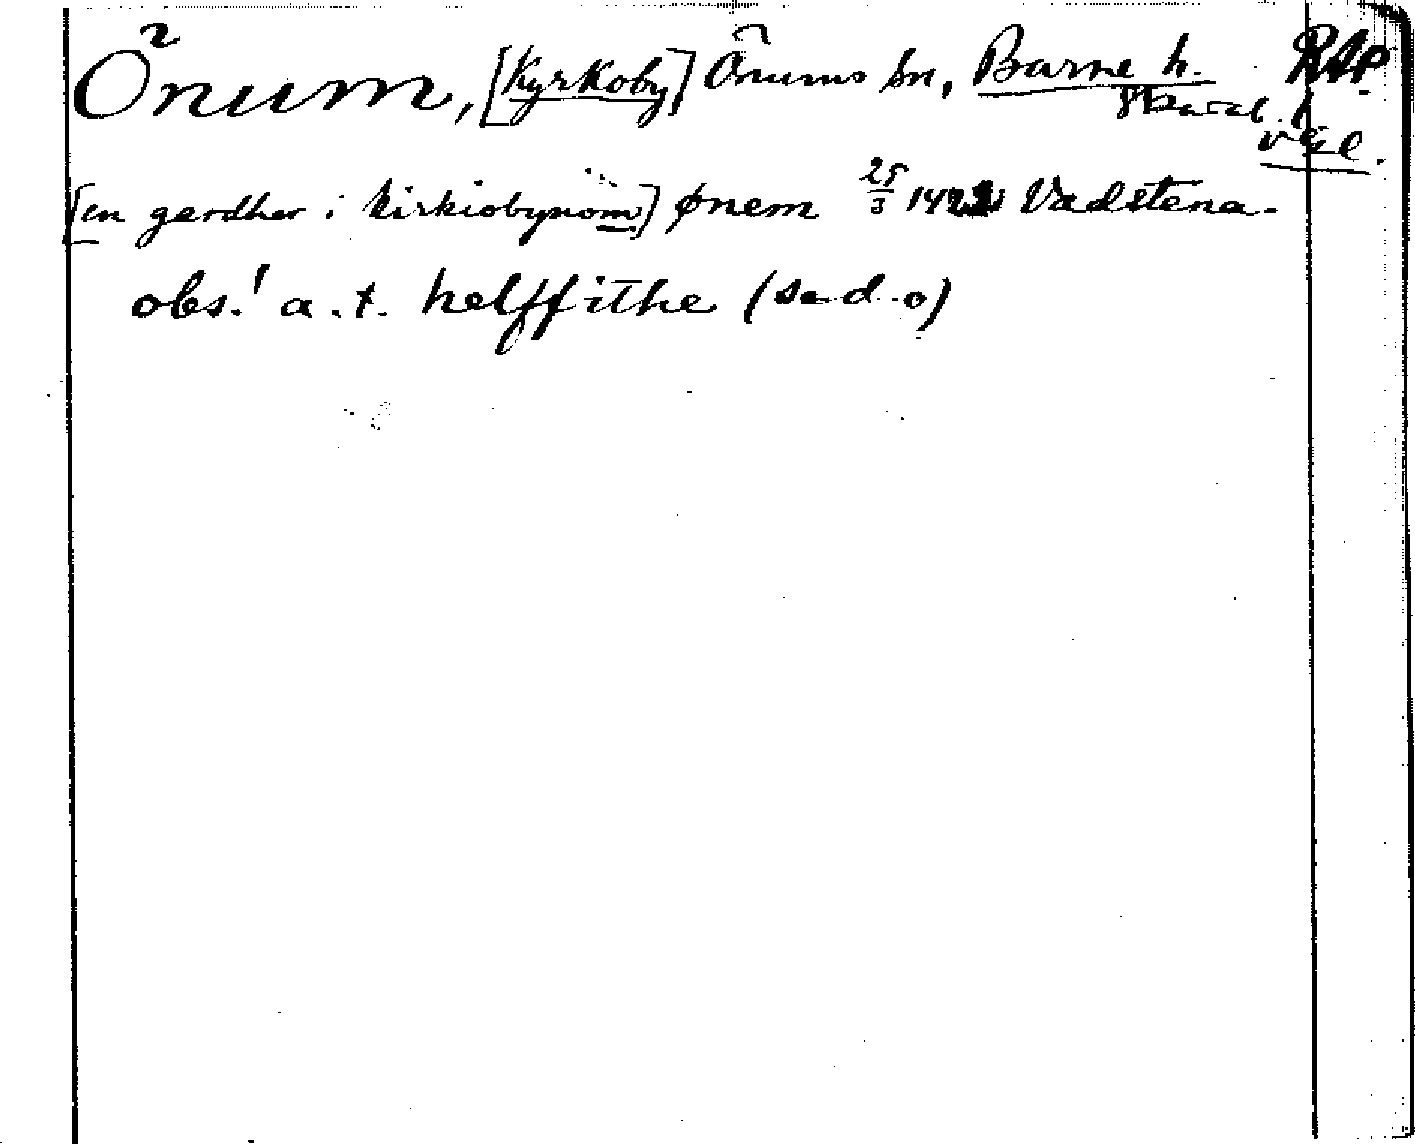 Önum, [Kyrkoby] Önums sn, Barne h. RAp
Skarab. l
Vgl.
[en gardher i kirkiobynom] ønem 25/3 1422 Vadstena.
obs.! a.t. helffithe (se d.o)